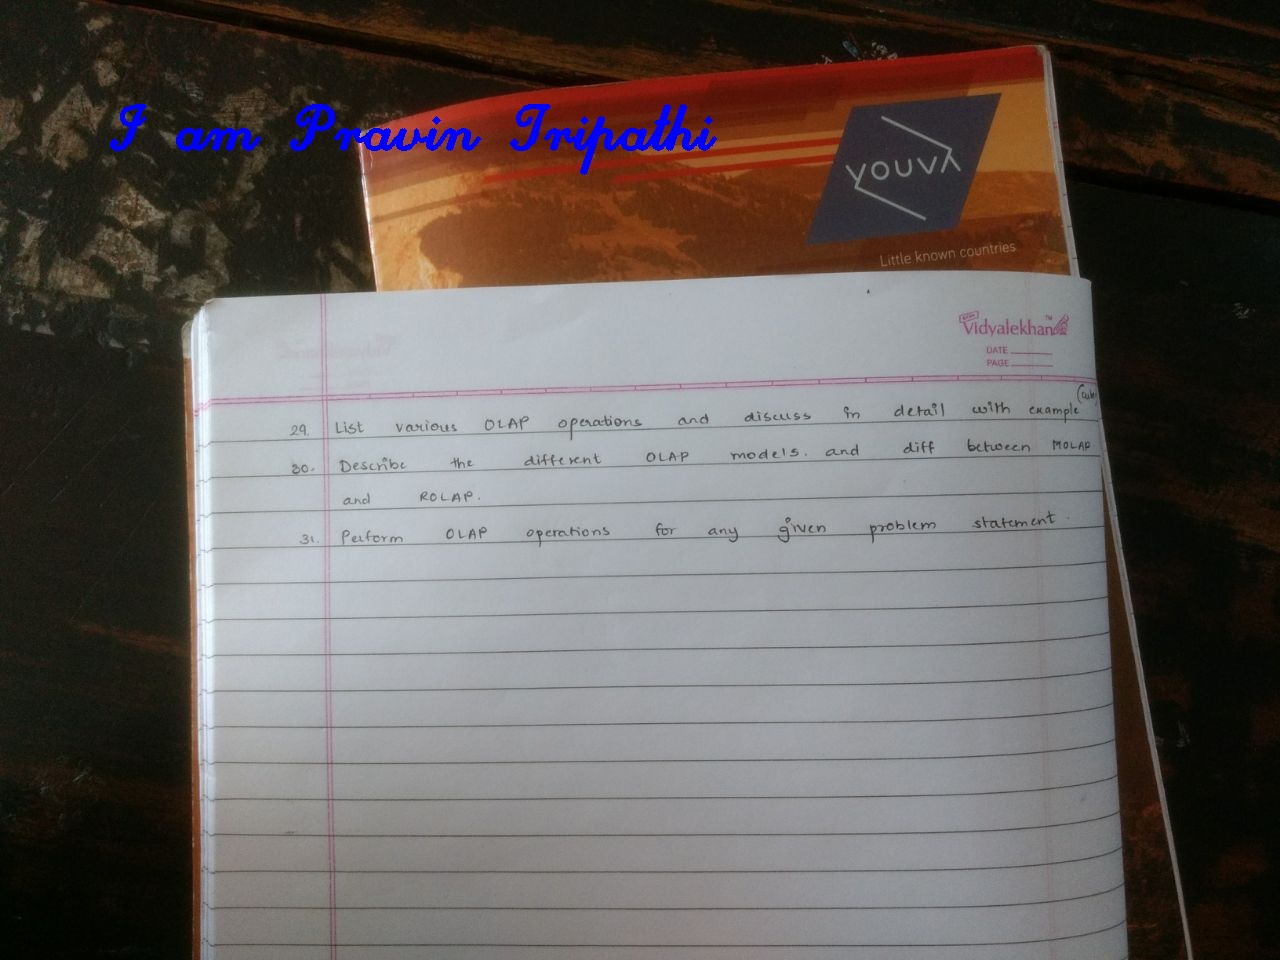 I am Pravin Tripathi
YOUVA
Little known countries
Vidyalekhan
TM
DATE
PAGE
29. List various OLAP operations and discuss in detail with example
30. Describe the different OLAP models. and diff between MOLAP
and ROLAP.
31. Perform OLAP operations for any given problem statement.